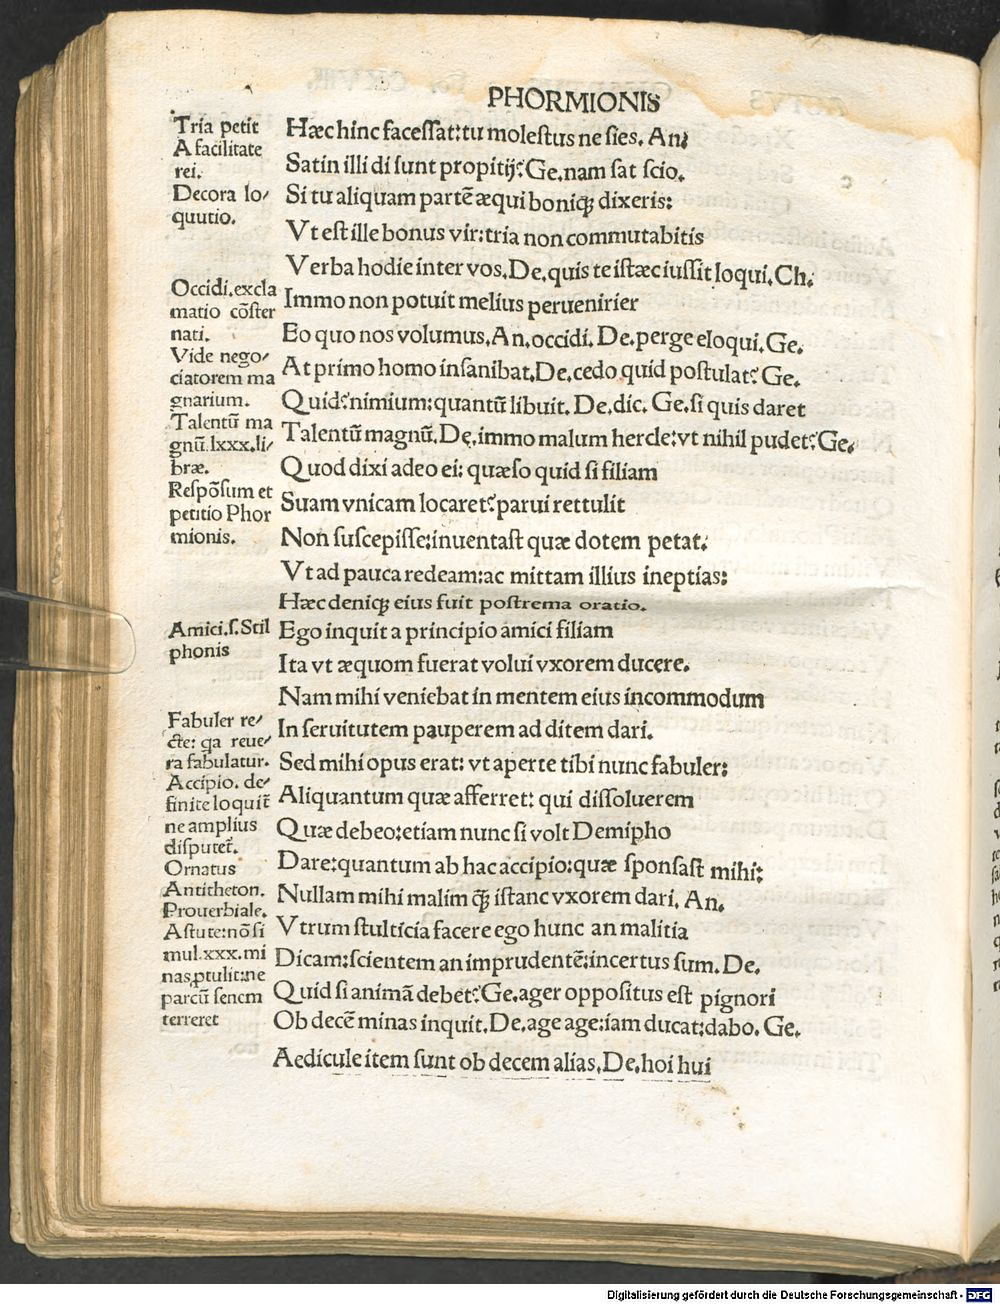 PHORMIONIS
Tria petit
A facilitate
rei.
Decora lo/
quutio.
Occidi.excla
matio cōster
nati.
Vide nego/
ciatorem ma
gnarium.
Talentū ma
gnū.lxxx.li/
bræ.
Respōsum et
petitio Phor
mionis.
Amici.ſ.Stil
phonis
Fabuler re/
cte: qa reue/
ra fabulatur.
Accipio. de/
finite loquit̄
ne amplius
disputet̄.
Ornatus
Antitheton.
Prouerbiale.
Astute:nō si
mul.xxx.mi
nas ꝓtulit:ne
parcū senem
terreret
Hæc hinc facessat:tu molestus ne sies. An.
Satin illi di sunt propitij? Ge.nam sat scio.
Si tu aliquam partē æqui boniqꝫ dixeris:
Vt est ille bonus vir:tria non commutabitis
Verba hodie inter vos.De.quis te istæc iussit loqui.Ch.
Immo non potuit melius peruenirier
Eo quo nos volumus.An.occidi. De.perge eloqui.Ge.
At primo homo insanibat.De.cedo quid postulat? Ge.
Quid?nimium:quantū libuit. De.dic. Ge.si quis daret
Talentū magnū.De.immo malum hercle:vt nihil pudet?Ge.
Quod dixi adeo ei: quæso quid si filiam
Suam vnicam locaret?parui rettulit
Non suscepisse:inuentast quæ dotem petat.
Vt ad pauca redeam:ac mittam illius ineptias:
Hæc deniqꝫ eius fuit postrema oratio.
Ego inquit a principio amici filiam
Ita vt æquom fuerat volui vxorem ducere.
Nam mihi veniebat in mentem eius incommodum
In seruitutem pauperem ad ditem dari.
Sed mihi opus erat: vt aperte tibi nunc fabuler:
Aliquantum quæ afferret: qui dissoluerem
Quæ debeo:etiam nunc si volt Demipho
Dare:quantum ab hac accipio:quæ sponsast mihi:
Nullam mihi malim qꝫ̄ istanc vxorem dari. An.
Vtrum stulticia facere ego hunc an malitia
Dicam:scientem an imprudentē:incertus sum.De.
Quid si animā debet?Ge.ager oppositus est pignori
Ob decē minas inquit.De.age age:iam ducat:dabo. Ge.
Aedicule item sunt ob decem alias.De.hoi hui
Digitalisierung gefördert durch die Deutsche Forschungsgemeinschaft - DFG